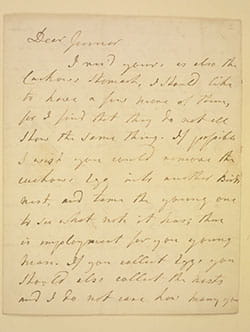 Dear Jenner
I recd yours as also the
Cuckows Stomach, I should like
to have a few more of them,
for I find that they do not all
show the same thing. If possible
I wish you could remove the
cuckows Egg into another Birds
nest, and tame the young one
to see what note it has; there
is employment for you young
Man. If you collect Eggs you
should also collect the nests
and I do not care how many you